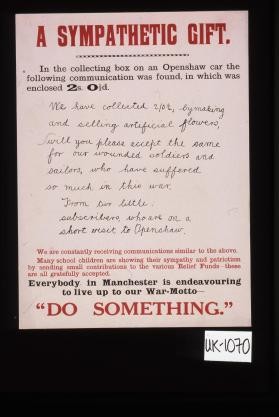 A SYMPATHETIC GIFT.
In the collecting box on an Openshaw car the
following communication was found, in which was
enclosed 2s. 0½d.
We have collected 2/0½, by making
and selling artificial flowers,
will you please accept the same
for our wounded soldiers and
sailors, who have suffered
so much in this war.
From two little
subscribers, who are on a
short visit to Openshaw.
We are constantly receiving communications similar to the above.
Many school children are showing their sympathy and patriotism
by sending small contributions to the various Relief Funds—these
are all gratefully accepted.
Everybody in Manchester is endeavouring
to live up to our War-Motto—
"DO SOMETHING."
UK-1070